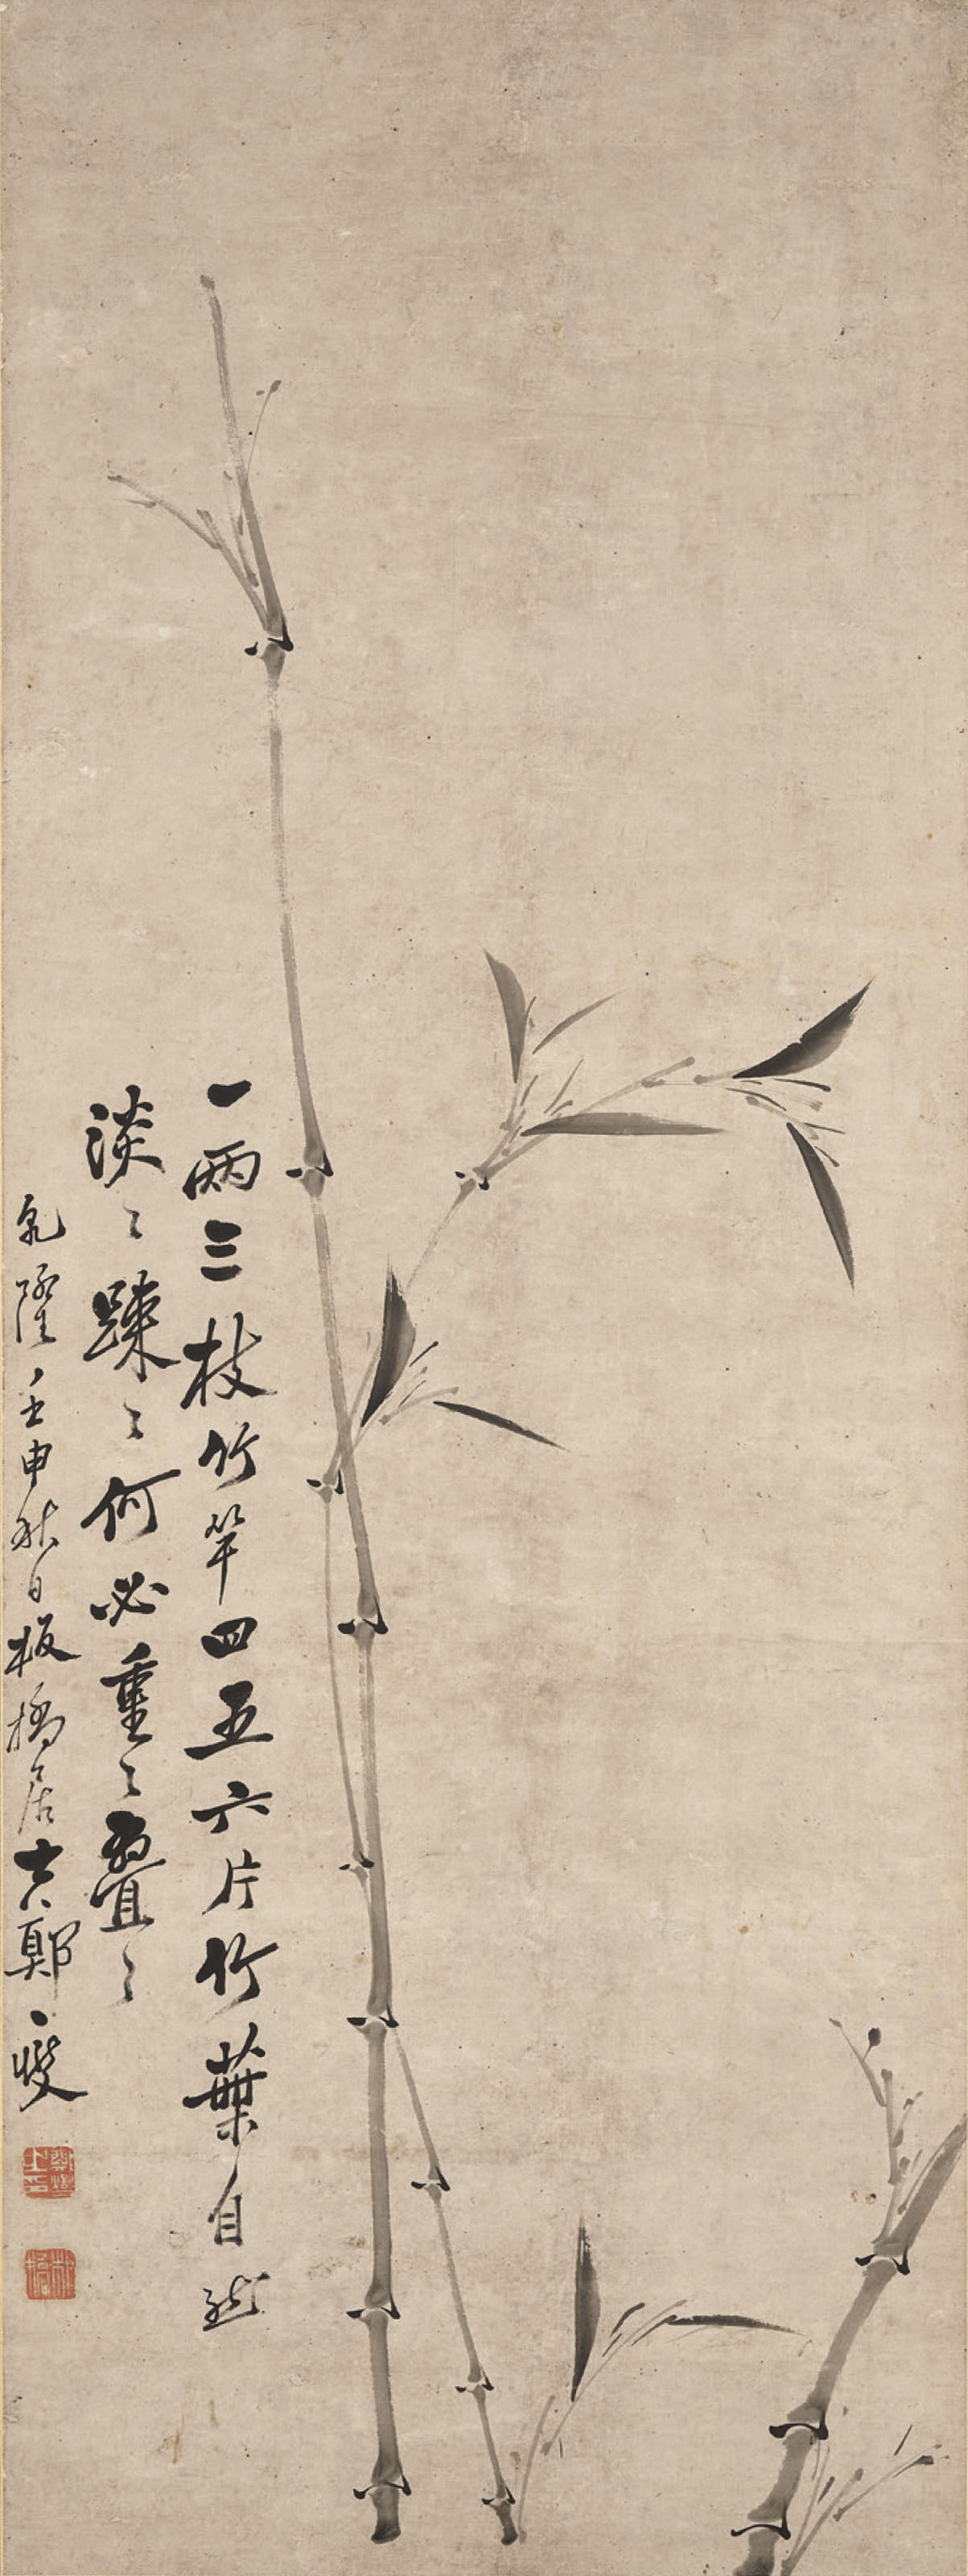 一兩三枝竹竿四五六片竹葉自然
淡〻踈〻何必重〻疊〻
乾隆壬申秋日板橋居士鄭燮
鄭燮之印